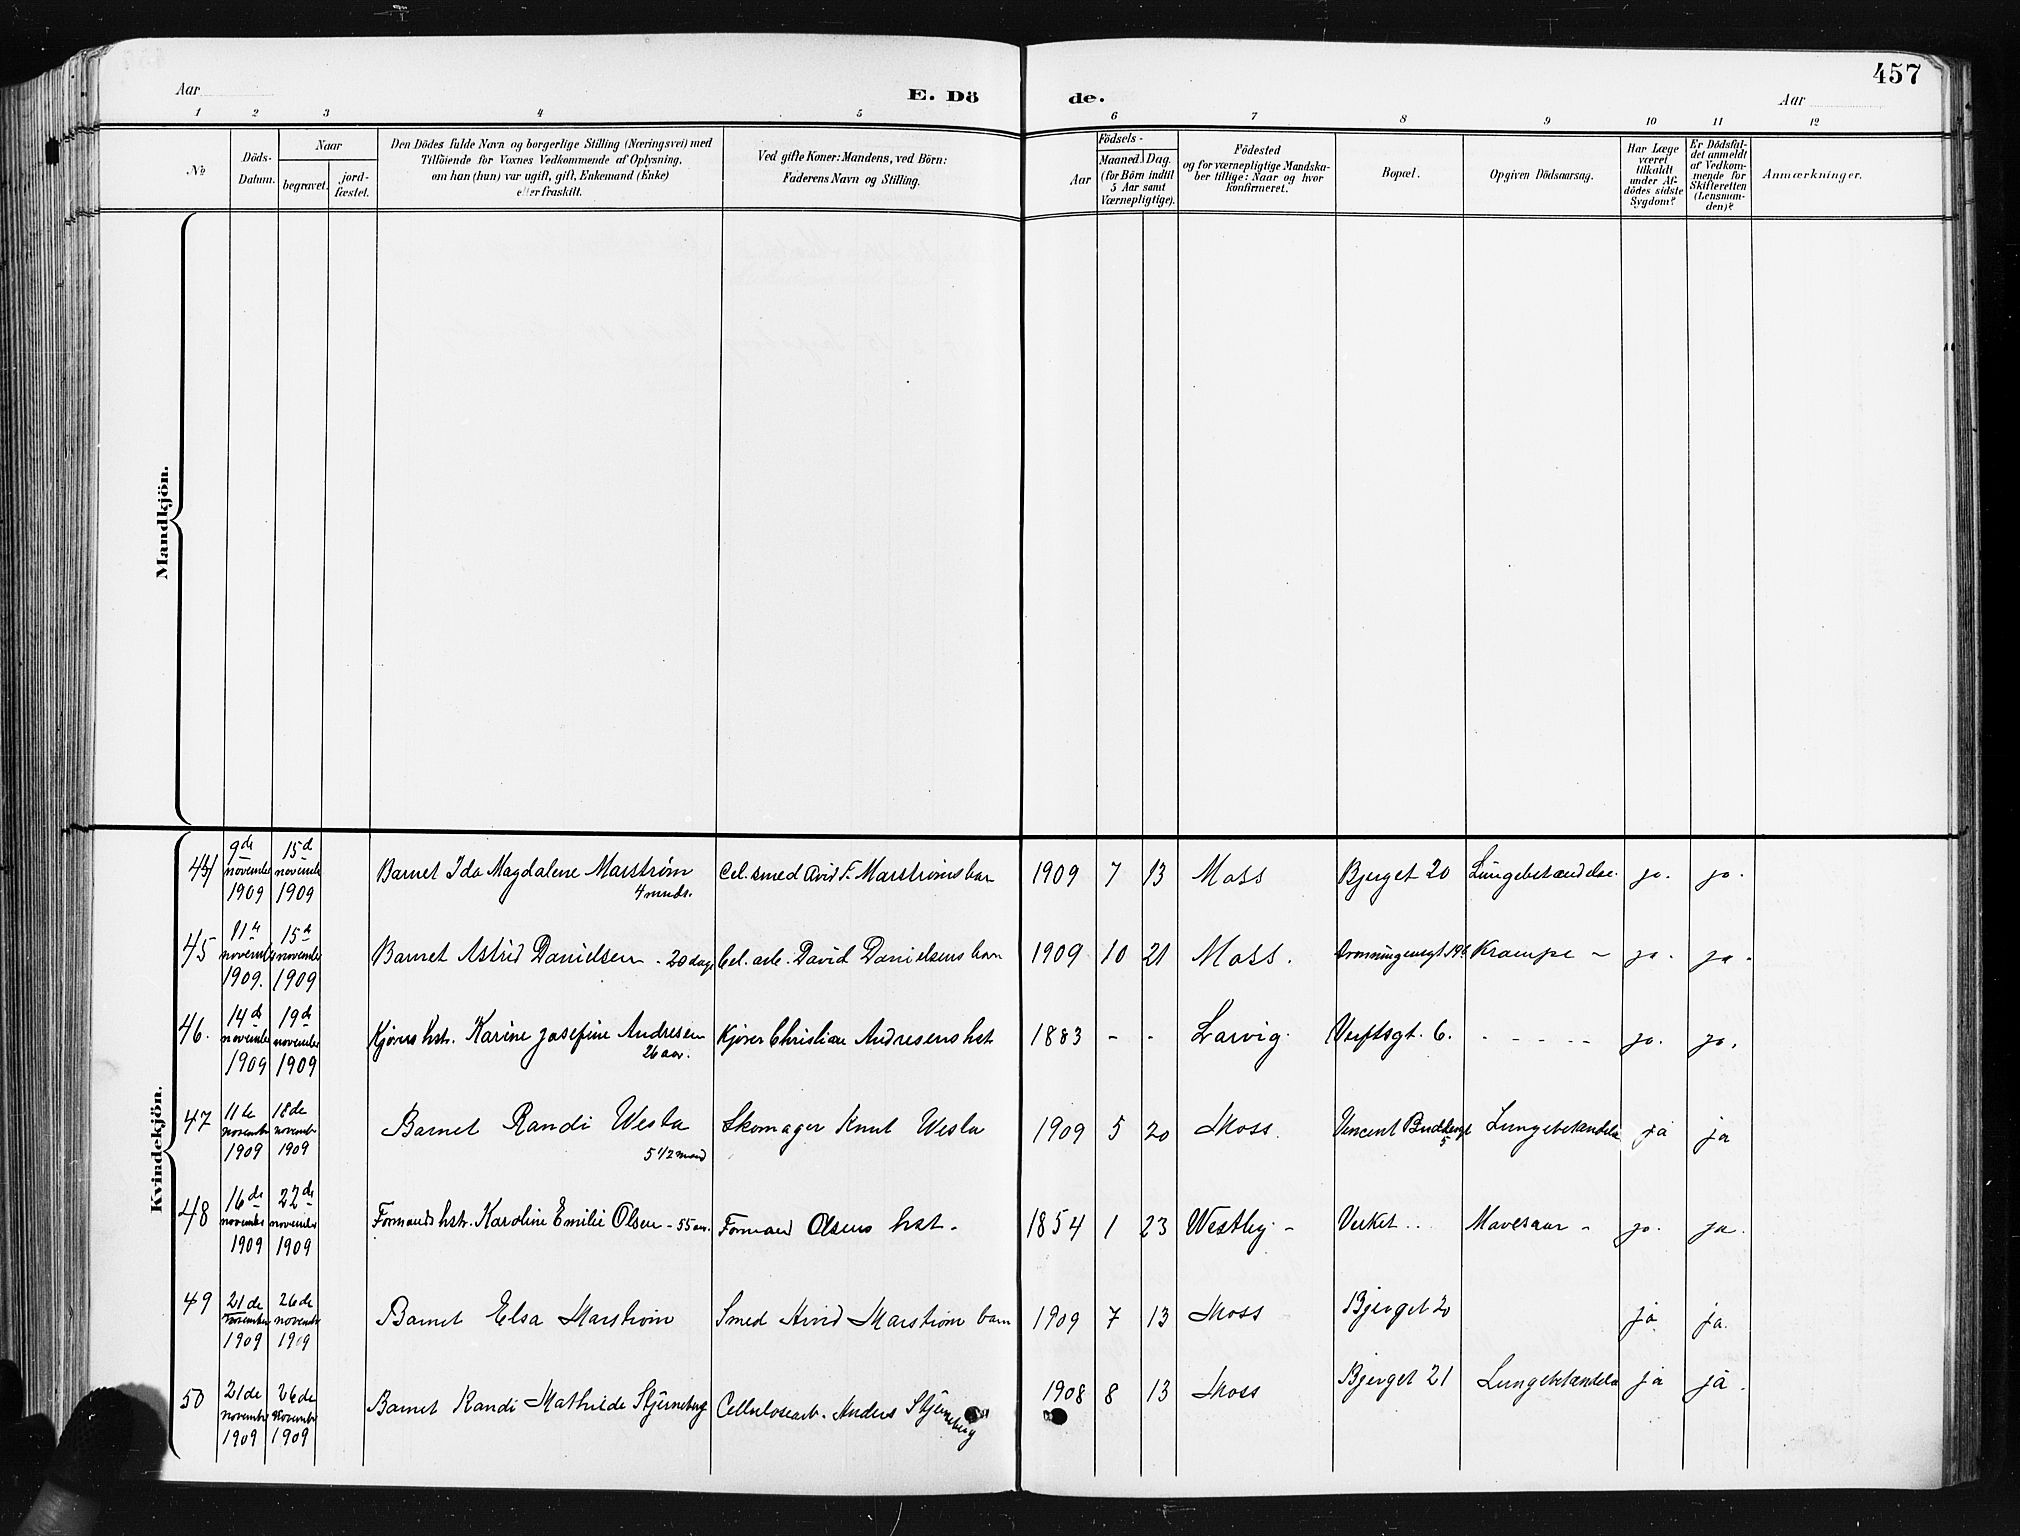 457
Aar
E. Dö
de.
Aar
1 2 3 4 5 6 7 8 9 10 11 12
No
Döds-
Datum.
Naar
begravet.
jord-
fæstet.
Den Dödes fulde Navn og borgerlige Stilling (Næringsvei) med
Tilföiende for Voxnes Vedkommende af Oplysning,
om han (hun) var ugift, gift, Enkemand (Enke)
eller fraskilt.
Ved gifte Koner: Mandens, ved Börn:
Faderens Navn og Stilling.
Aar
Födsels-
Maaned. Dag.
(for Börn indtil
5 Aar samt
Værnepligtige).
Födested
og for værnepligtige Mandska-
ber tillige: Naar og hvor
konfirmeret.
Bopæl.
Opgiven Dödsaarsag.
Har Læge
været
tilkaldt
under Af-
dödes sidste
Sygdom?
Er Dödsfal-
det anmeldt
af Vedkom-
mende for
Skifteretten
(Lensman-
den)?
Anmærkninger.
Mandkjön.
Kvindekjön.
44 9de november 1909 15d november 1909 Barnet Ida Magdalene Marstrøm 4 munds. Cel. smed Arvid F. Marstrøms barn 1909 7 13 Moss Bjerget 20 Lungebetændelse. ja. ja.
45 11te november 1909. 15de november 1909 Barnet Astrid Danielsen - 20 dage Cel. arb. David Danielsens barn 1909 10 21 Moss. Dronningensgt 19b Krampe - ja. ja.
46. 14de november 1909 19de november 1909 Kjørers hstr. Karine Josefine Andresen 26 aar. Kjører Christian Andresens hst 1883 - - Larvig. Verftsgt. 6. - - - - - ja. ja.
47 11te november 1909 18de november 1909 Barnet Randi Wesla 5 1/2 maand Skomager Knut Wesla 1909 5 20 Moss. Vincent Budhergt 5 Lungebetændelse ja ja
48 16de november 1909 22de november 1909 Formands hstr. Karoline Emilie Olsen - 55 aar. Formand Olsens hst - 1854 1 23 Westby - Verket .. Mavesaar - ja. ja.
49 21de november 1909 26de november 1909 Barnet Elsa Marstrøm Smed Arvid Marstrøm barn 1909 7 13 Moss Bjerget 20 ja ja.
50 21de november 1909 26de november 1909 Barnet Randi Mathilde Stjerneberg Cellulosearb. Anders Stjerneberg 1908 8 13 Moss Bjerget 21 Lungebetændelse ja ja.